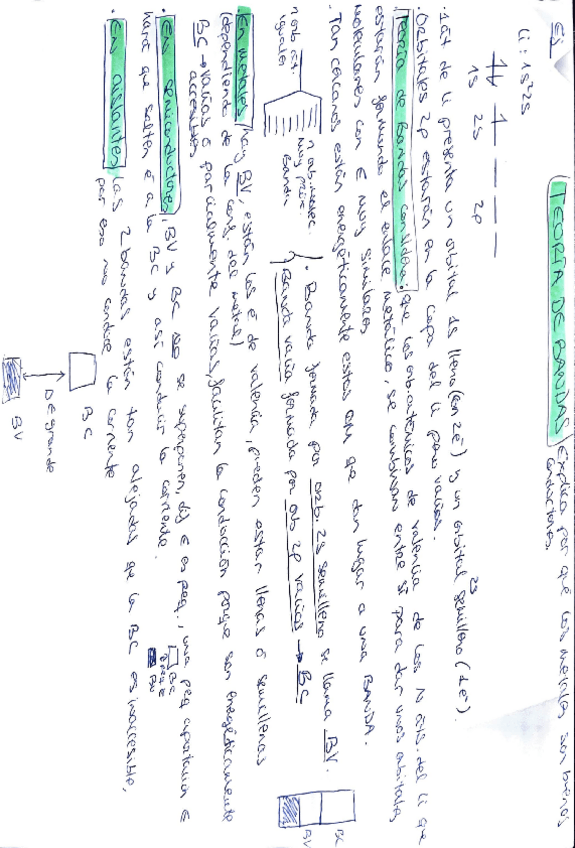 TEORÍA DE BANDAS Explica por qué los metales son buenos conductores
Ej
Li: 1s² 2s
1s 2s 2p
· 1 át de Li presenta un orbital 1s lleno (con 2e⁻) y un orbital 2s semilleno (1e⁻).
· Orbitales 2p estarán en la capa del Li pero vacíos.
· Teoría de Bandas considera: que los orb. atómicos de valencia de los N áts. del Li que
estarán formando el enlace metálico, se combinan entre sí para dar unos orbitales
moleculares con E muy similares
· Tan cercanos están energéticamente estos OM que dan lugar a una BANDA.
n orb. át. iguales
n ob. molec. muy próx. Banda
· Banda formada por orb. 2s semilleno se llama BV.
· Banda vacía formada por ob 2p vacíos → BC
BC
BV
· En metales hay BV, están los e⁻ de valencia, pueden estar llenas o semillenas
(dependiendo de la conf. del metal)
BC → vacías o parcialmente vacías, facilitan la conducción porque son energéticamente
accesibles
· En semiconductores, BV y BC no se superponen, dif E es peq., una peq aportación E
hará que salten e⁻ a la BC y así conducir la corriente.
BC
BV
· En aislantes las 2 bandas están tan alejadas que la BC es inaccesible,
por eso no conduce la corriente
BC
DE grande
BV